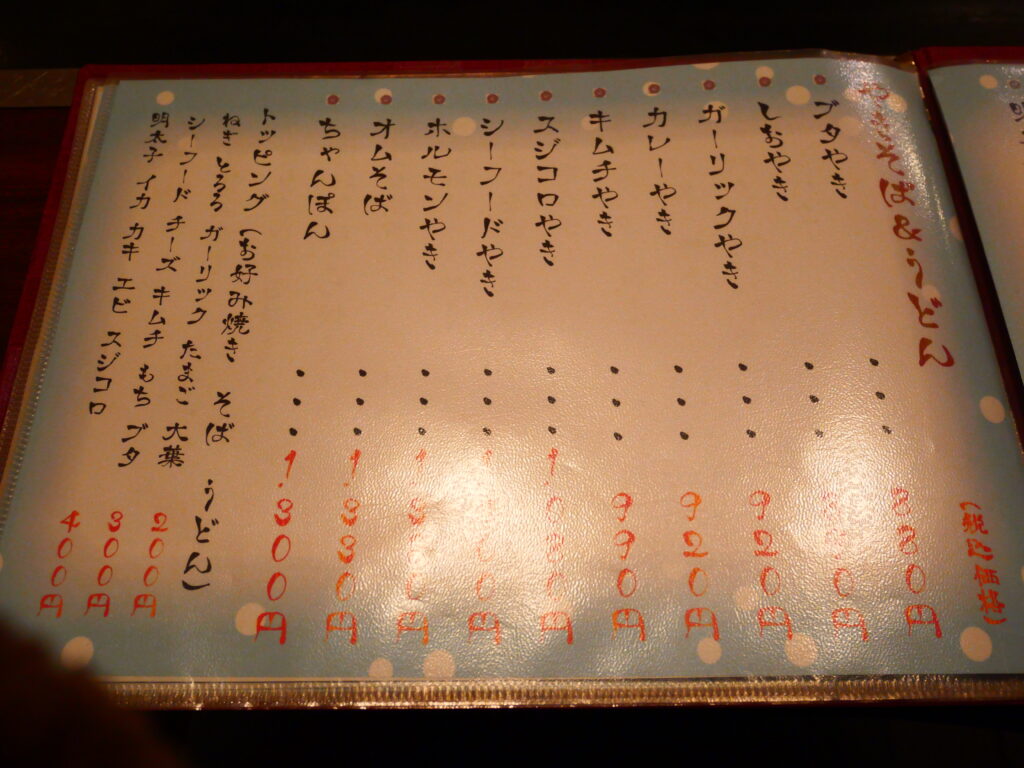 やきそば&うどん
(税込価格)
ブタやき・・・880円
しおやき・・・
ガーリックやき・・・920円
カレーやき・・・920円
キムチやき・・・990円
スジコロやき・・・1,080円
シーフードやき・・・
ホルモンやき・・・
オムそば・・・
ちゃんぽん・・・1,300円
トッピング (お好み焼き そば うどん)
ねぎ とろろ ガーリック たまご 大葉 200円
シーフード チーズ キムチ もち ブタ 300円
明太子 イカ カキ エビ スジコロ 400円